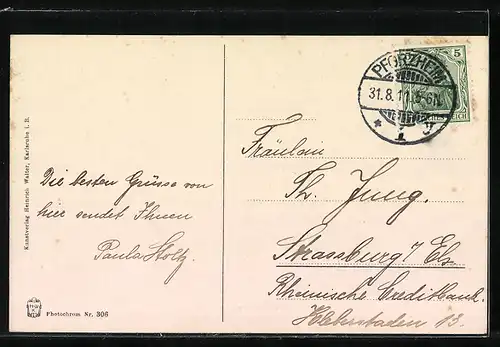 5
PFORZHEIM
31.8.11.5-6N.
Fräulein
Th. Jung.
Strassburg i/ Els.
Rheinische Creditbank.
Die besten Grüsse von
hier sendet Ihnen
Paula Stoltz.
Kunstverlag Heinrich Walter, Karlsruhe i. B.
Photochrom Nr. 306